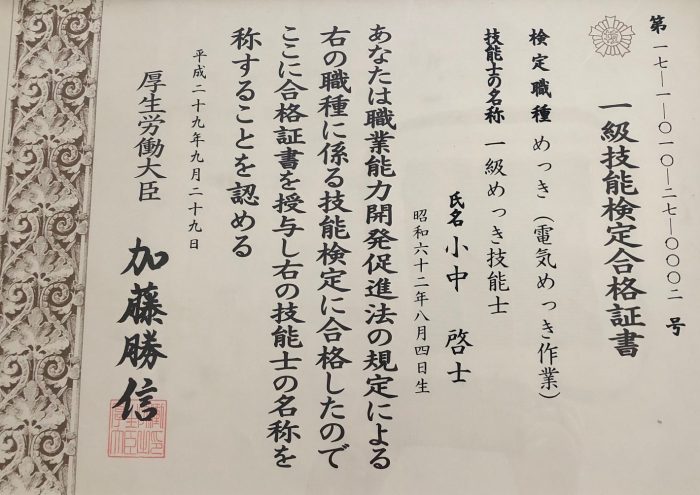 第一七―一―〇一〇―二七―〇〇〇二号
一級技能検定合格証書
検定職種 めっき（電気めっき作業）
技能士の名称 一級めっき技能士
氏名 小中 啓士
昭和六十二年八月四日生
あなたは職業能力開発促進法の規定による
右の職種に係る技能検定に合格したので
ここに合格証書を授与し右の技能士の名称を
称することを認める
平成二十九年九月二十九日
厚生労働大臣 加藤勝信